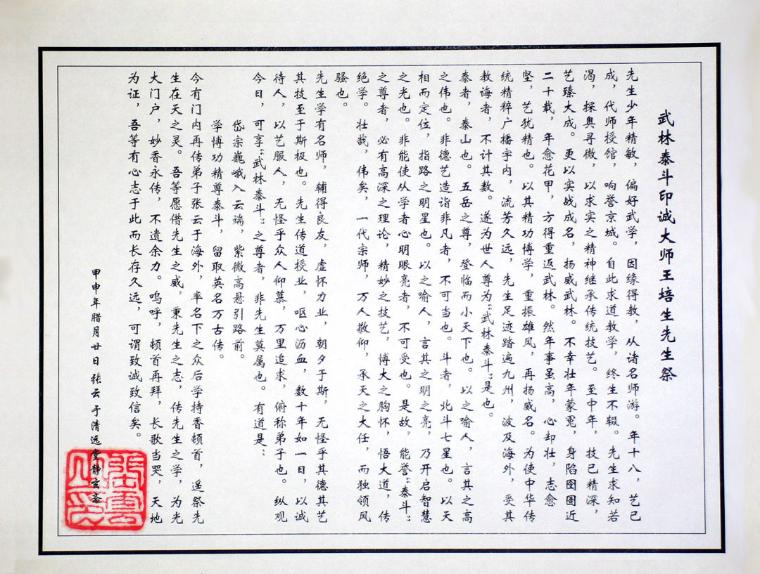 武林泰斗印诚大师王培生先生祭
先生少年精敏，偏好武学，因缘得教，从诸名师游。年十八，艺已
成，代师授馆，响誉京城。自此求道教学，终生不辍。先生求知若
渴，探奥寻微，以求实之精神继承传统技艺。至中年，技已精深，
艺臻大成。更以实战成名，扬威武林。不幸壮年蒙冤，身陷囹圄近
二十载，年愈花甲，方得重返武林。然年事虽高，心却壮，志愈
坚，艺犹精也。以其精功博学，重振雄风，再扬威名。为使中华传
统精粹广播宇内，流芳久远，先生足迹踏遍九州，波及海外，受其
教诲者，不计其数。遂为世人尊为“武林泰斗”是也。
泰者，泰山也。五岳之尊，登临而小天下也。以之喻人，言其之高
之伟也。非德艺造诣非凡者，不可当也。斗者，北斗七星也。以天
相而定位，指路之明星也。以之喻人，言其之明之亮，乃开启智慧
之光也。非能使从学者心明眼亮者，不可受也。是故，能誉“泰斗”
之尊者，必有高深之理论，精妙之技艺，博大之胸怀，悟大道，传
绝学。壮哉，伟矣，一代宗师，万人敬仰，承天之大任，而独领风
骚也。
先生学有名师，辅得良友，虚怀力业，朝夕于斯，无怪乎其德其艺
其技至于斯极也。先生传道授业，呕心沥血，数十年如一日，以诚
待人，以艺服人，无怪乎众人仰慕，万里追求，俯称弟子也。纵观
今日，可享“武林泰斗”之尊者，非先生莫属也。有道是：
岱宗巍峨入云端，紫微高悬引路前。
学博功精尊泰斗，留取英名万古传。
今有门内再传弟子张云于海外，率名下之众后学持香顿首，遥祭先
生在天之灵。吾等愿借先生之威，秉先生之志，传先生之学，为光
大门户，妙香永传，不遗余力。呜呼，顿首再拜，长歌当哭，天地
为证，吾等有心志于此而长存久远，可谓致诚致信矣。
甲申年腊月廿日张云于清远堂静玄斋
张云之印